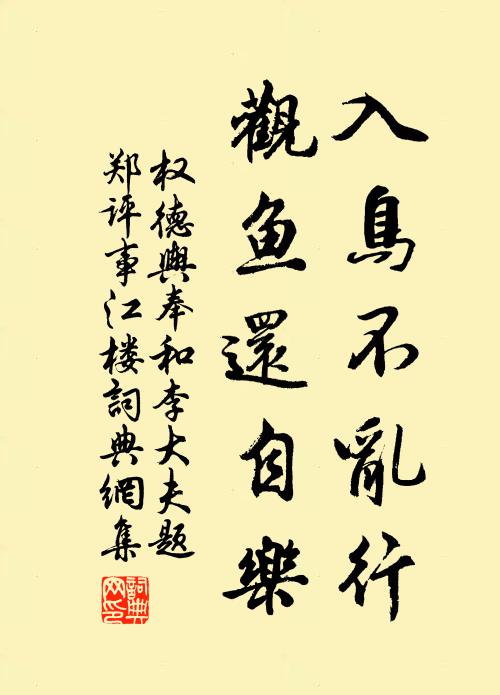 入鳥不亂行
觀鱼還自樂
权德輿奉和李大夫题
郑评事江楼詞典網集
詞典网印